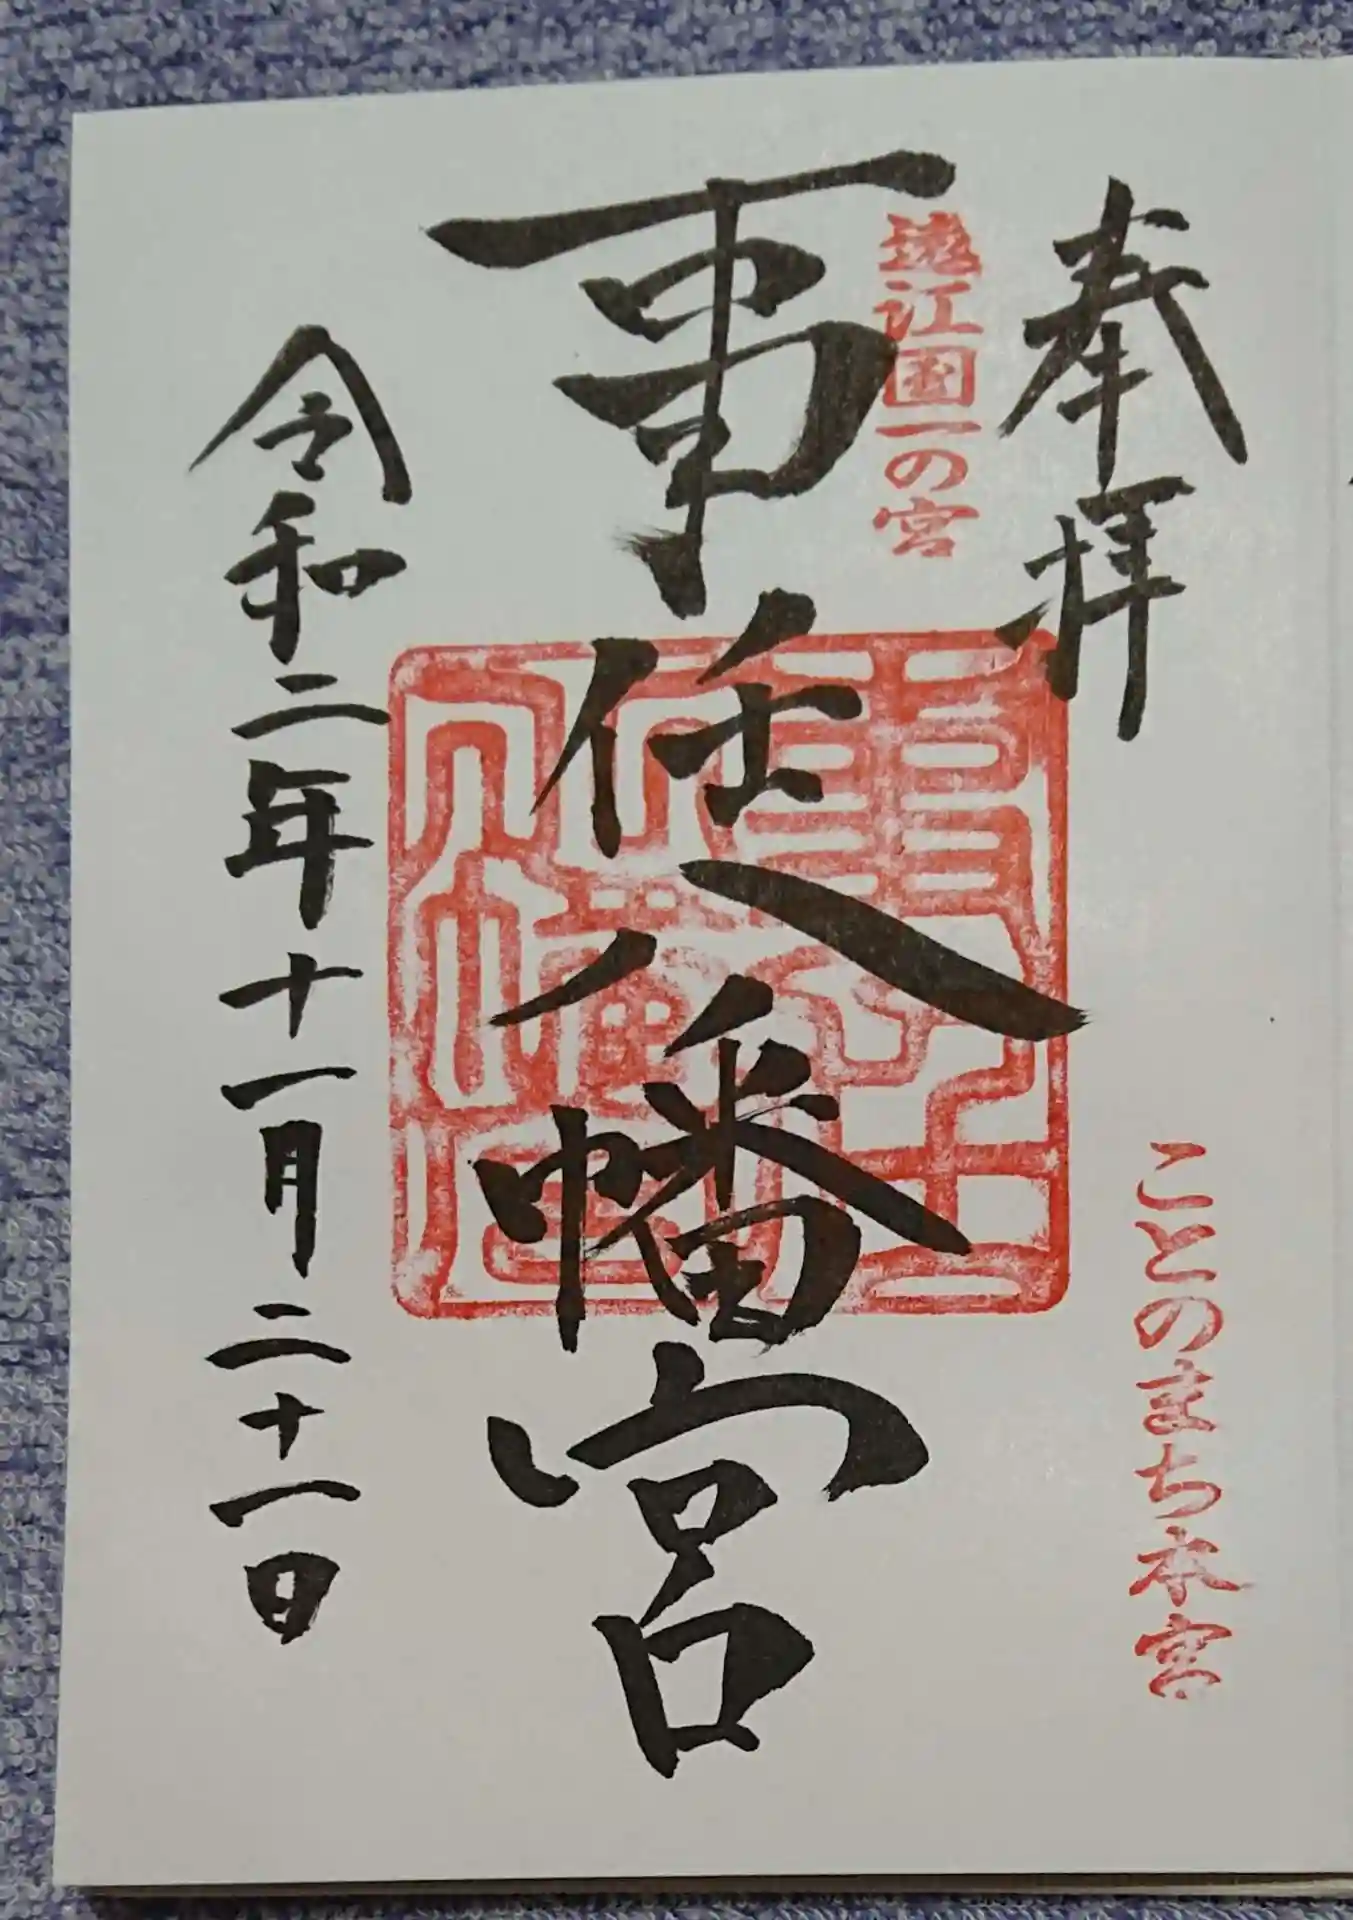 奉拝
ことのまち本宮
遠江国一の宮
事任八幡宮
令和二年十一月二十一日